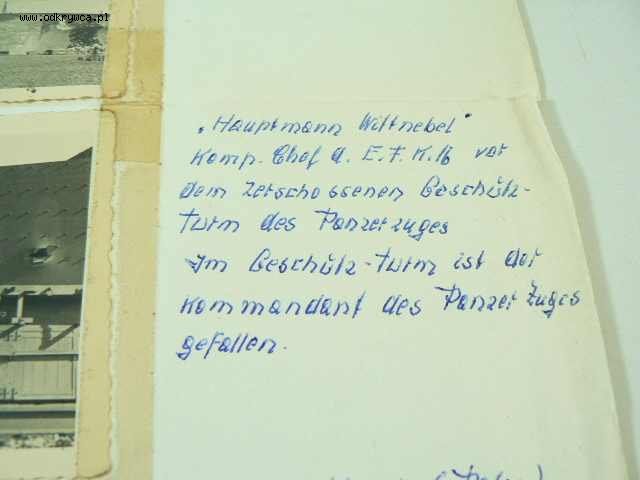 www.odkrywca.pl
„Hauptmann Wittnebel"
Komp. Chef d. E.F.K. 16 vor
dem zerschossenen Geschütz-
turm des Panzerzuges
Im Geschütz-turm ist der
Kommandant des Panzerzuges
gefallen.